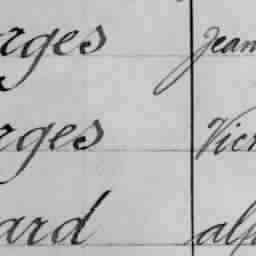 rges Jean
rges Vict
ard alp